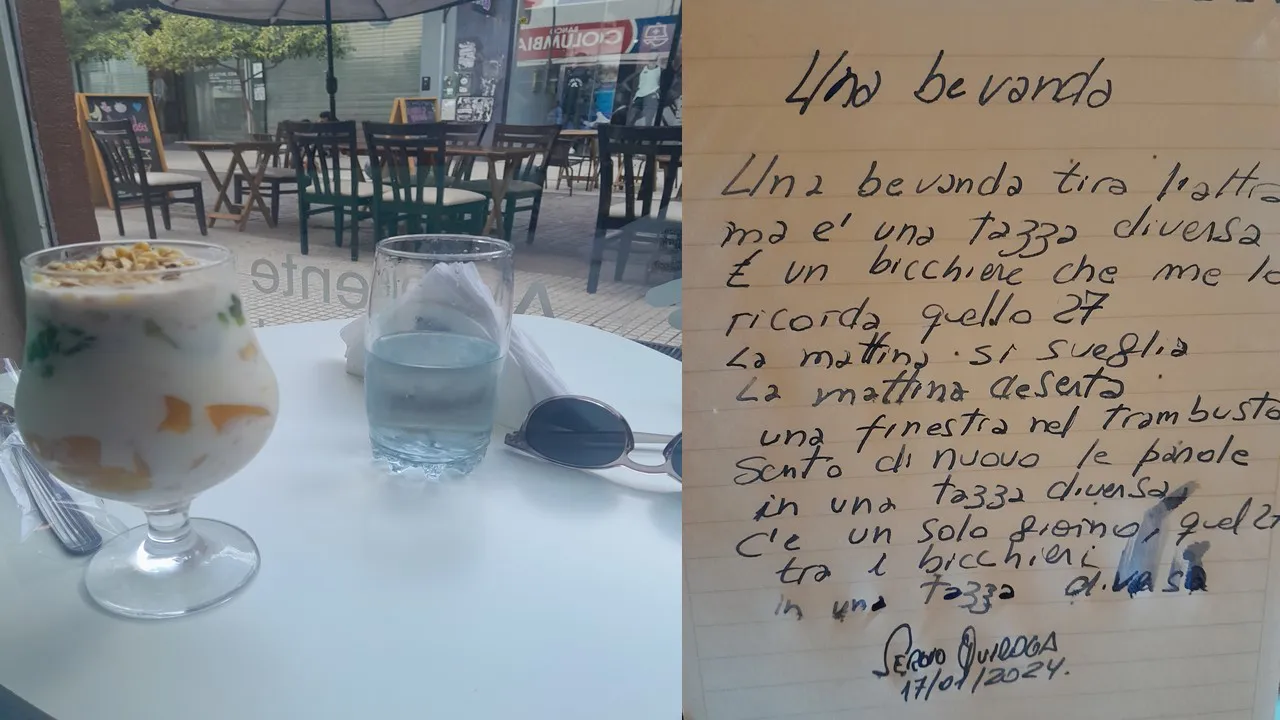 BANCO
COLUMBIA
Ambiente
Una bevanda
Una bevanda tira l'altra
ma e' una tazza diversa
E un bicchiere che me lo
ricorda, quello 27
La mattina si sveglia
La mattina deserta
una finestra nel trambusto
Sento di nuovo le parole
in una tazza diversa,
C'e un solo giorno, quel 27
tra i bicchieri
in una tazza diversa
SERGIO QUIROGA
17/01/2024.